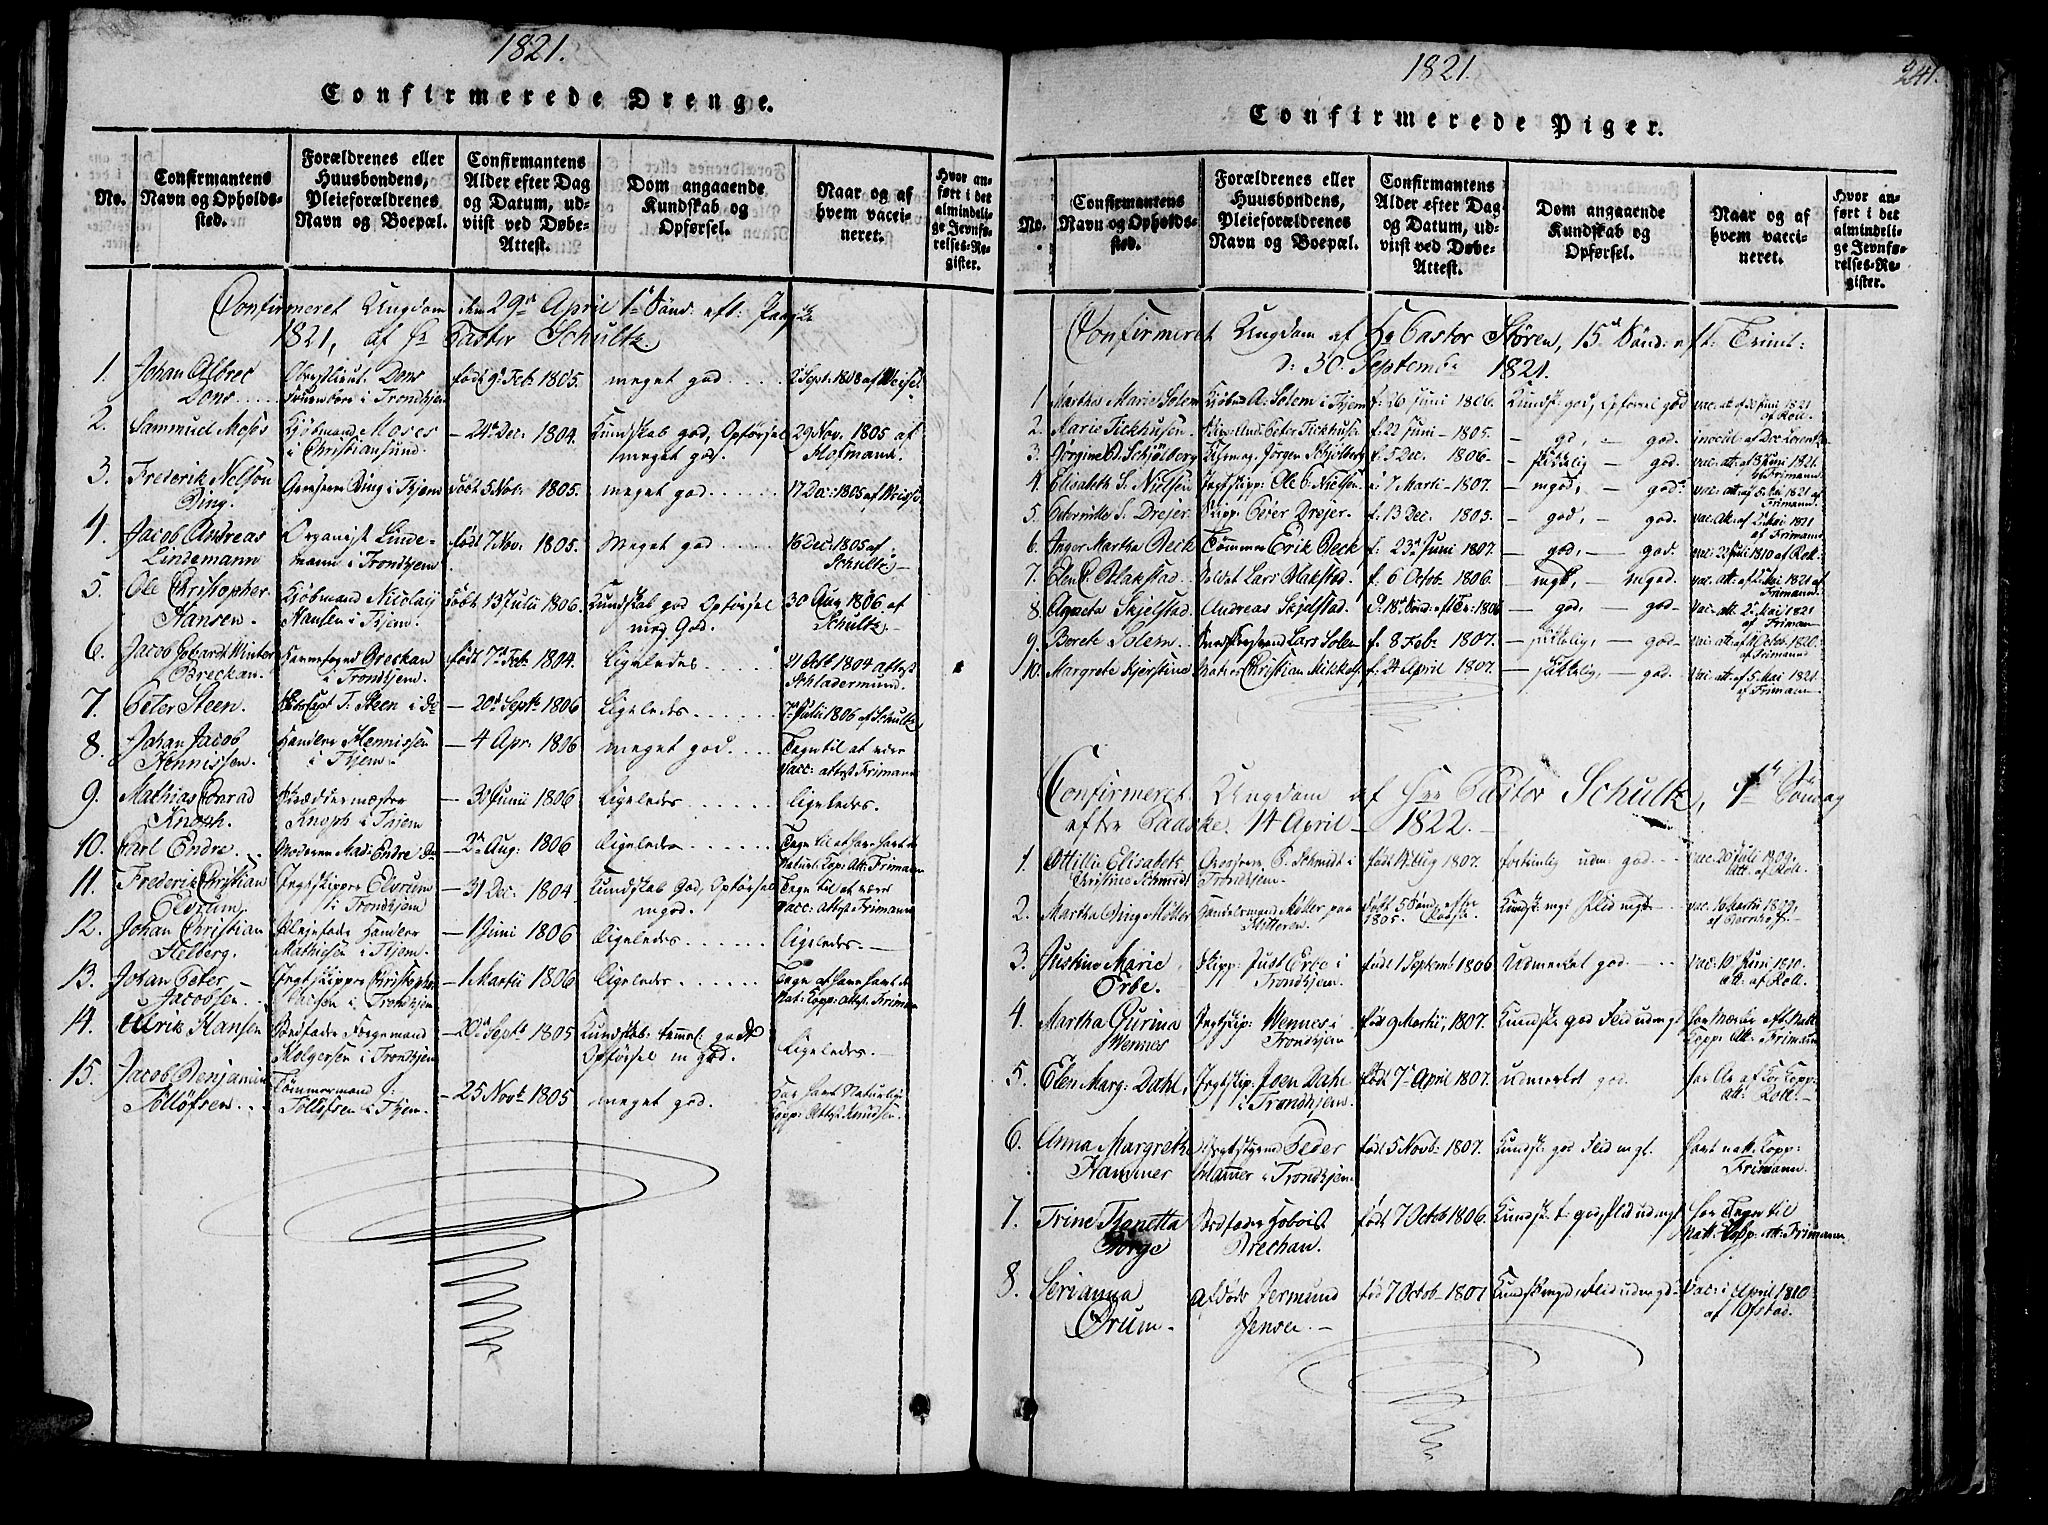 1821.
Confirmerede Drenge.
No.
Confirmantens Navn og Opholds-sted.
Forældrenes eller Huusbondens, Pleieforældrenes Navn og Boepæl.
Confirmantens Alder efter Dag og Datum, ud-viist ved Døbe-Attest.
Dom angaaende Kundskab og Opførsel.
Naar og af hvem vacci-neret.
Hvor an-ført i det almindeli-ge Jevnfø-relses-Re-gister.
Confirmeret Ungdom den 29de April 1ste Sönd: eft: Paaske
1821, af Hr Pastor Schultz.
1. Johan Albrec Dons Obrestlieut. Dons i Trondhjem född 9 Feb: 1805. meget god 2 Sept: 1808 af
2. Sammuel Moses Kjöbmand Moses i Christiansund. — 24de Dec: 1804. Kundskab god, Opförsel meget god. 29 Nov: 1805 af Hofmann.
3. Frederik Nelson Bing. Grosserer Bing i Thjem född 5 Nov: 1805. meget god 17 Dec: 1805 af
4. Jacob Andreas Lindemann Organist Linde-mann i Trondhjem född 7 Nov: 1805. Meget god 16 Dec: 1805 af Schultz —
5. Ole Christopher Hansen. Kjöbmand Nicolaij Hansen i Thjem. född 13 Julii 1806. Kundskab god Opförsel meg God. 30 Aug: 1806 af Schultz —
6. Jacob Winter Breckan. Breckan i Trondhjem. född 7de Feb: 1804. Ligeledes 21 Octb 1804 attest Schladermund.
7. Peter Steen. T: Steen i do — 20de Septb 1806 Ligeledes 7de Julii 1806 af Schultz
8. Johan Jacob Hennissen. Handler Hennissen i Thjem. — 4 Apr: 1806 meget god. Tegn til at være Vacc: attest Frimann
9. Mathias Conrad Knoph. Skræddermester Knoph i Thjem — 30 Junii 1806 Ligeledes ligeledes.
10. Carl Endre Moderen Mad: Endre do — 2de Aug: 1806 Ligeledes Tegn til at have havt de Naturl: Kop: Att: Frimann
11. Frederik Christian Elvrum Jegtskipper Elvrum i Trondhjem — 31 Dec: 1804 Kundskab God, Opförsel mgod. Tegn til at være Vacc: attest Frimann
12. Johan Christian Helberg. Plejefader Handler Mathiesen i Thjem. — 1 Juni 1806 Ligeledes ligeledes. —
13. Johan Peter Jacobsen Jegtskipper Christopher i Trondhjem — 1 Martii 1806 Ligeledes Tegn at have havt de Nat: Kopp: Attest: Frimann
14. Ulrik Hansen Bedfader Færgemand Holgersen i Trondhjem — 20de Septb 1805 Kundskab: temmel: godt Opförsel m god. Ligeledes. —
15. Jacob Benjamin Tollöfsen Tömmermand Tollöfsen i Thjem. — 25 Novb 1805 meget god. Har havt Naturlige Kopp: Attest Knudsen.
1821. 241.
Confirmerede Piger.
No.
Confirmantens Navn og Opholds-sted.
Forældrenes eller Huusbondens, Pleieforældrenes Navn og Boepæl.
Confirmantens Alder efter Dag og Datum, ud-viist ved Døbe-Attest.
Dom angaaende Kundskab og Opførsel.
Naar og af hvem vacci-neret.
Hvor an-ført i det almindeli-ge Jevnfø-relses-Re-gister.
Confirmeret Ungdom af Hr Pastor Stören, 15de Sönd: eft: Trinit:
d: 30 Septembr 1821.
1 Martha Marie Solem Kjöbmd A. Solem i Thjem f: 26 Juni 1806. Kundsk: god, Opförsel god vac: att: af Juni 1821 af Roll.
2. Marie Tickhusen. Peter Tickhusen f: 22 Juni — 1805. — gd, — god. inocul af Doc Lorentz
3. Jörgine Schjölberg Jörgen Schjölberg f: 5 Dec: 1806 — skikkelig — god. vac: att: af 8 Juni 1821 Frimann.
4. Elisabeth S. Nielsen Jegtskipp: Ole C: Nielsen f: 7 Marti — 1807. — mgod, — god. vac: att: af 5 Mai 1821 af Frimann.
5. Peternille S. Drejer Skipp: Peter Drejer. f: 13 Dec. 1805. — god, — god. vac: Att: af Mai 1821 af Frimann
6. Inger Martha Beck Tömmer Erik Beck f: 23de Juni 1807. — god, — god. vac: 22 Juli 1810 af Roll.
7. Elen C. Blakstad. Soldat Lars Blakstad. f: 6 Octob. 1806. — mgtt, — mgod. vac: att: af Mai 1821 af Frimann.
8 Agneta Skjelstad Andreas Skjelstad. 18de Sönd: eft Tr: 1806 — god, — god — vac: att: 2 Mai 1821 af Frimann
9 Berete Solem Lars Solem f. 8 Febr 1807. — skikkelig, — god — vac: att: af Octob: 1820. af Frimann
10. Margrete Kjerstine Christian Mikkels: f: 24 April 1807. — skikkelig, — god. vac: att: af 5 Mai 1821. af Frimann
Confirmeret Ungdom af Hrr Pastor Schultz, 1ste Söndag
efter Paaske. 14 April — 1822. —
1. Ottillie Elisabeth Christine Schmidt Grosserer C. Schmidt i Trondhjem född 14 Aug 1807. fortrinlig udm: god vac: 20 Juli 1809. att: af Roll
2. Martha Bing Möller Handelsmand Möller paa Hitteren. född 5 Sönd efter Paaske 1805. Kundsk: mgt Flid mgt vac. Martii 1809. af
3. Justine Marie Erbe. Skipp: Just Erbe i Trondhjem. född 1 Septemb: 1806 Udmerket god vac: 10 Juni 1810. att: af Roll
4. Martha Gurina Wennes Jegtskip: Wennes i Trondhjem född 9 Martii, 1807. Kundsk: god Flid udmgt Kopp: Att: Frimann
5. Elen Marg: Dahl, Jegtskip: Joen Dahl i Trondhjem. född 7de April 1807. udmerket god. har Ar af Kopp: att: Roll. —
6. Anna Margrethe Hammer Peder Hammer i Trondhjem. född 5 Novb: 1807. Kundsk: god Flid mgt. havt natt: Kopp: Frimann.
7. Trine Borge Bedfader Hobois Brechan. född 7 Octob 1806. Kundsk: t: god, Flid udmgt har Tegn til Natt: Kopp: att: Frimann
8. Serianna Örum — afdöde Jermund Jensen — född 7 Octob — 1807 Kundsk: mgd, Flid udmgd — Vac: i April 1810 af Ofstad.